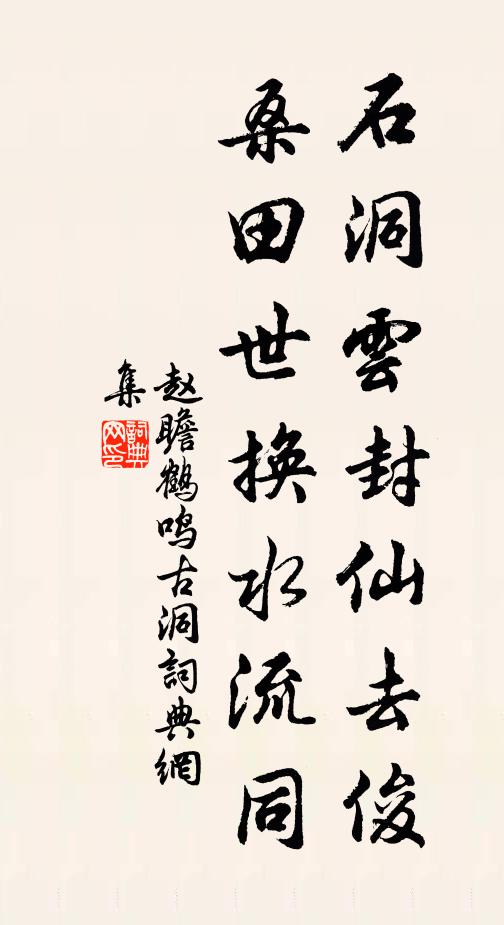 石洞雲封仙去俊
桑田世换水流同
赵瞻鶴鸣古洞詞典網
集
詞典
网印